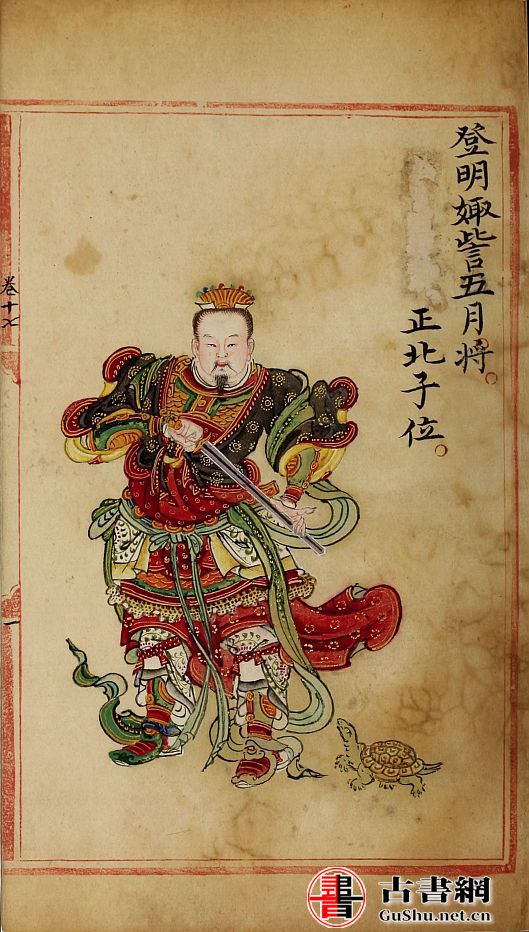 登明娵訾五月将
正北子位
卷十七
書
古書網
GuShu.net.cn